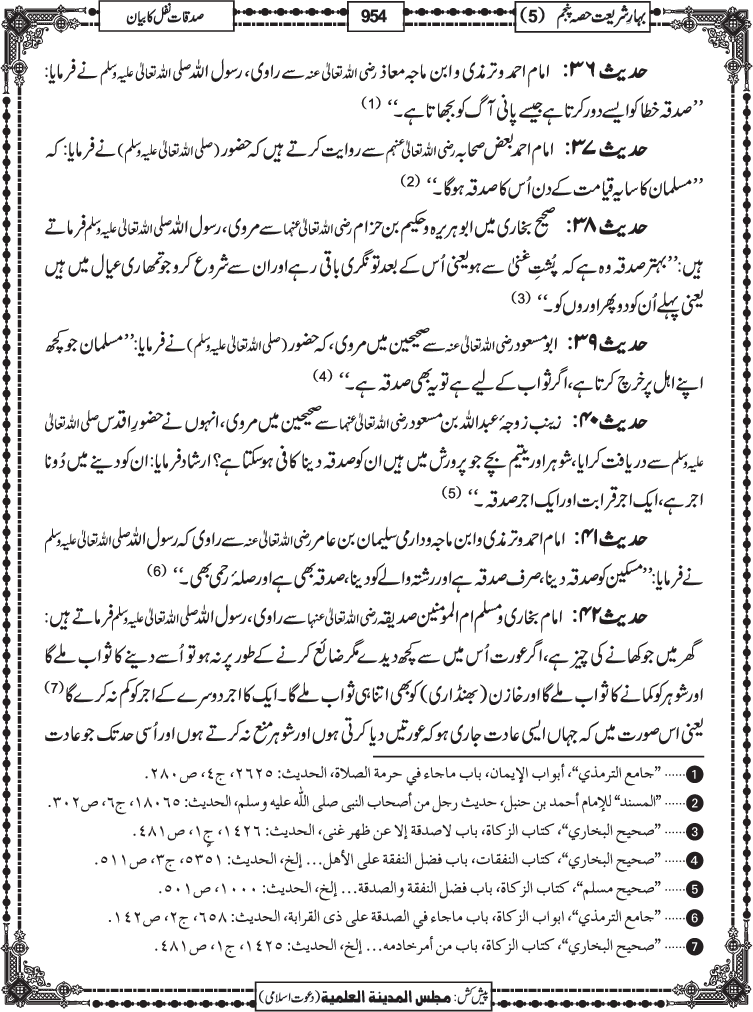 بہار شریعت حصہ پنجم (5)
954
صدقات نفل کا بیان
حدیث ۳۶: امام احمد و ترمذی و ابن ماجہ معاذ رضی اللہ تعالیٰ عنہ سے راوی، رسول اللہ صلی اللہ تعالیٰ علیہ وسلم نے فرمایا:
’’صدقہ خطا کو ایسے دور کرتا ہے جیسے پانی آگ کو بجھاتا ہے۔‘‘ (1)
حدیث ۳۷: امام احمد بعض صحابہ رضی اللہ تعالیٰ عنہم سے روایت کرتے ہیں کہ حضور (صلی اللہ تعالیٰ علیہ وسلم) نے فرمایا: کہ
’’مسلمان کا سایہ قیامت کے دن اُس کا صدقہ ہوگا۔‘‘ (2)
حدیث ۳۸: صحیح بخاری میں ابوہریرہ و حکیم بن حزام رضی اللہ تعالیٰ عنہما سے مروی، رسول اللہ صلی اللہ تعالیٰ علیہ وسلم فرماتے
ہیں: ’’بہتر صدقہ وہ ہے کہ پُشتِ غنیٰ سے ہو یعنی اُس کے بعد تونگری باقی رہے اور ان سے شروع کرو جو تمھاری عیال میں ہیں
یعنی پہلے اُن کو دو پھر اوروں کو۔‘‘ (3)
حدیث ۳۹: ابو مسعود رضی اللہ تعالیٰ عنہ سے صحیحین میں مروی، کہ حضور (صلی اللہ تعالیٰ علیہ وسلم) نے فرمایا: ’’مسلمان جو کچھ
اپنے اہل پر خرچ کرتا ہے، اگر ثواب کے لیے ہے تو یہ بھی صدقہ ہے۔‘‘ (4)
حدیث ۴۰: زینب زوجۂ عبداللہ بن مسعود رضی اللہ تعالیٰ عنہما سے صحیحین میں مروی، انہوں نے حضورِ اقدس صلی اللہ تعالیٰ
علیہ وسلم سے دریافت کرایا، شوہر اور یتیم بچے جو پرورش میں ہیں ان کو صدقہ دینا کافی ہوسکتا ہے؟ ارشاد فرمایا: ان کو دینے میں دُونا
اجر ہے، ایک اجر قرابت اور ایک اجر صدقہ۔‘‘ (5)
حدیث ۴۱: امام احمد و ترمذی و ابن ماجہ و دارمی سلیمان بن عامر رضی اللہ تعالیٰ عنہ سے راوی کہ رسول اللہ صلی اللہ تعالیٰ علیہ وسلم
نے فرمایا: ’’مسکین کو صدقہ دینا، صرف صدقہ ہے اور رشتہ والے کو دینا، صدقہ بھی ہے اور صلۂ رحمی بھی۔‘‘ (6)
حدیث ۴۲: امام بخاری و مسلم ام المومنین صدیقہ رضی اللہ تعالیٰ عنہا سے راوی، رسول اللہ صلی اللہ تعالیٰ علیہ وسلم فرماتے ہیں:
گھر میں جو کھانے کی چیز ہے، اگر عورت اُس میں سے کچھ دیدے مگر ضائع کرنے کے طور پر نہ ہو تو اُسے دینے کا ثواب ملے گا
اور شوہر کو کمانے کا ثواب ملے گا اور خازن (بھنڈاری) کو بھی اتنا ہی ثواب ملے گا۔ ایک کا اجر دوسرے کے اجر کو کم نہ کرے گا (7)
یعنی اس صورت میں کہ جہاں ایسی عادت جاری ہو کہ عورتیں دیا کرتی ہوں اور شوہر منع نہ کرتے ہوں اور اُسی حد تک جو عادت
1 ...... ”جامع الترمذي“، أبواب الإيمان، باب ماجاء في حرمة الصلاة، الحديث: ٢٦٢٥، ج٤، ص٢٨٠.
2 ...... ”المسند“ للإمام أحمد بن حنبل، حديث رجل من أصحاب النبي صلى الله عليه وسلم، الحديث: ١٨٠٦٥، ج٦، ص٣٠٢.
3 ...... ”صحيح البخاري“، كتاب الزكاة، باب لاصدقة إلا عن ظهر غنى، الحديث: ١٤٢٦، ج١، ص٤٨١.
4 ...... ”صحيح البخاري“، كتاب النفقات، باب فضل النفقة على الأهل... إلخ، الحديث: ٥٣٥١، ج٣، ص٥١١.
5 ...... ”صحيح مسلم“، كتاب الزكاة، باب فضل النفقة والصدقة... إلخ، الحديث: ١٠٠٠، ص٥٠١.
6 ...... ”جامع الترمذي“، ابواب الزكاة، باب ماجاء في الصدقة على ذى القرابة، الحديث: ٦٥٨، ج٢، ص١٤٢.
7 ...... ”صحيح البخاري“، كتاب الزكاة، باب من أمر خادمه... إلخ، الحديث: ١٤٢٥، ج١، ص٤٨١.
پیش کش: مجلس المدینۃ العلمیۃ (دعوت اسلامی)